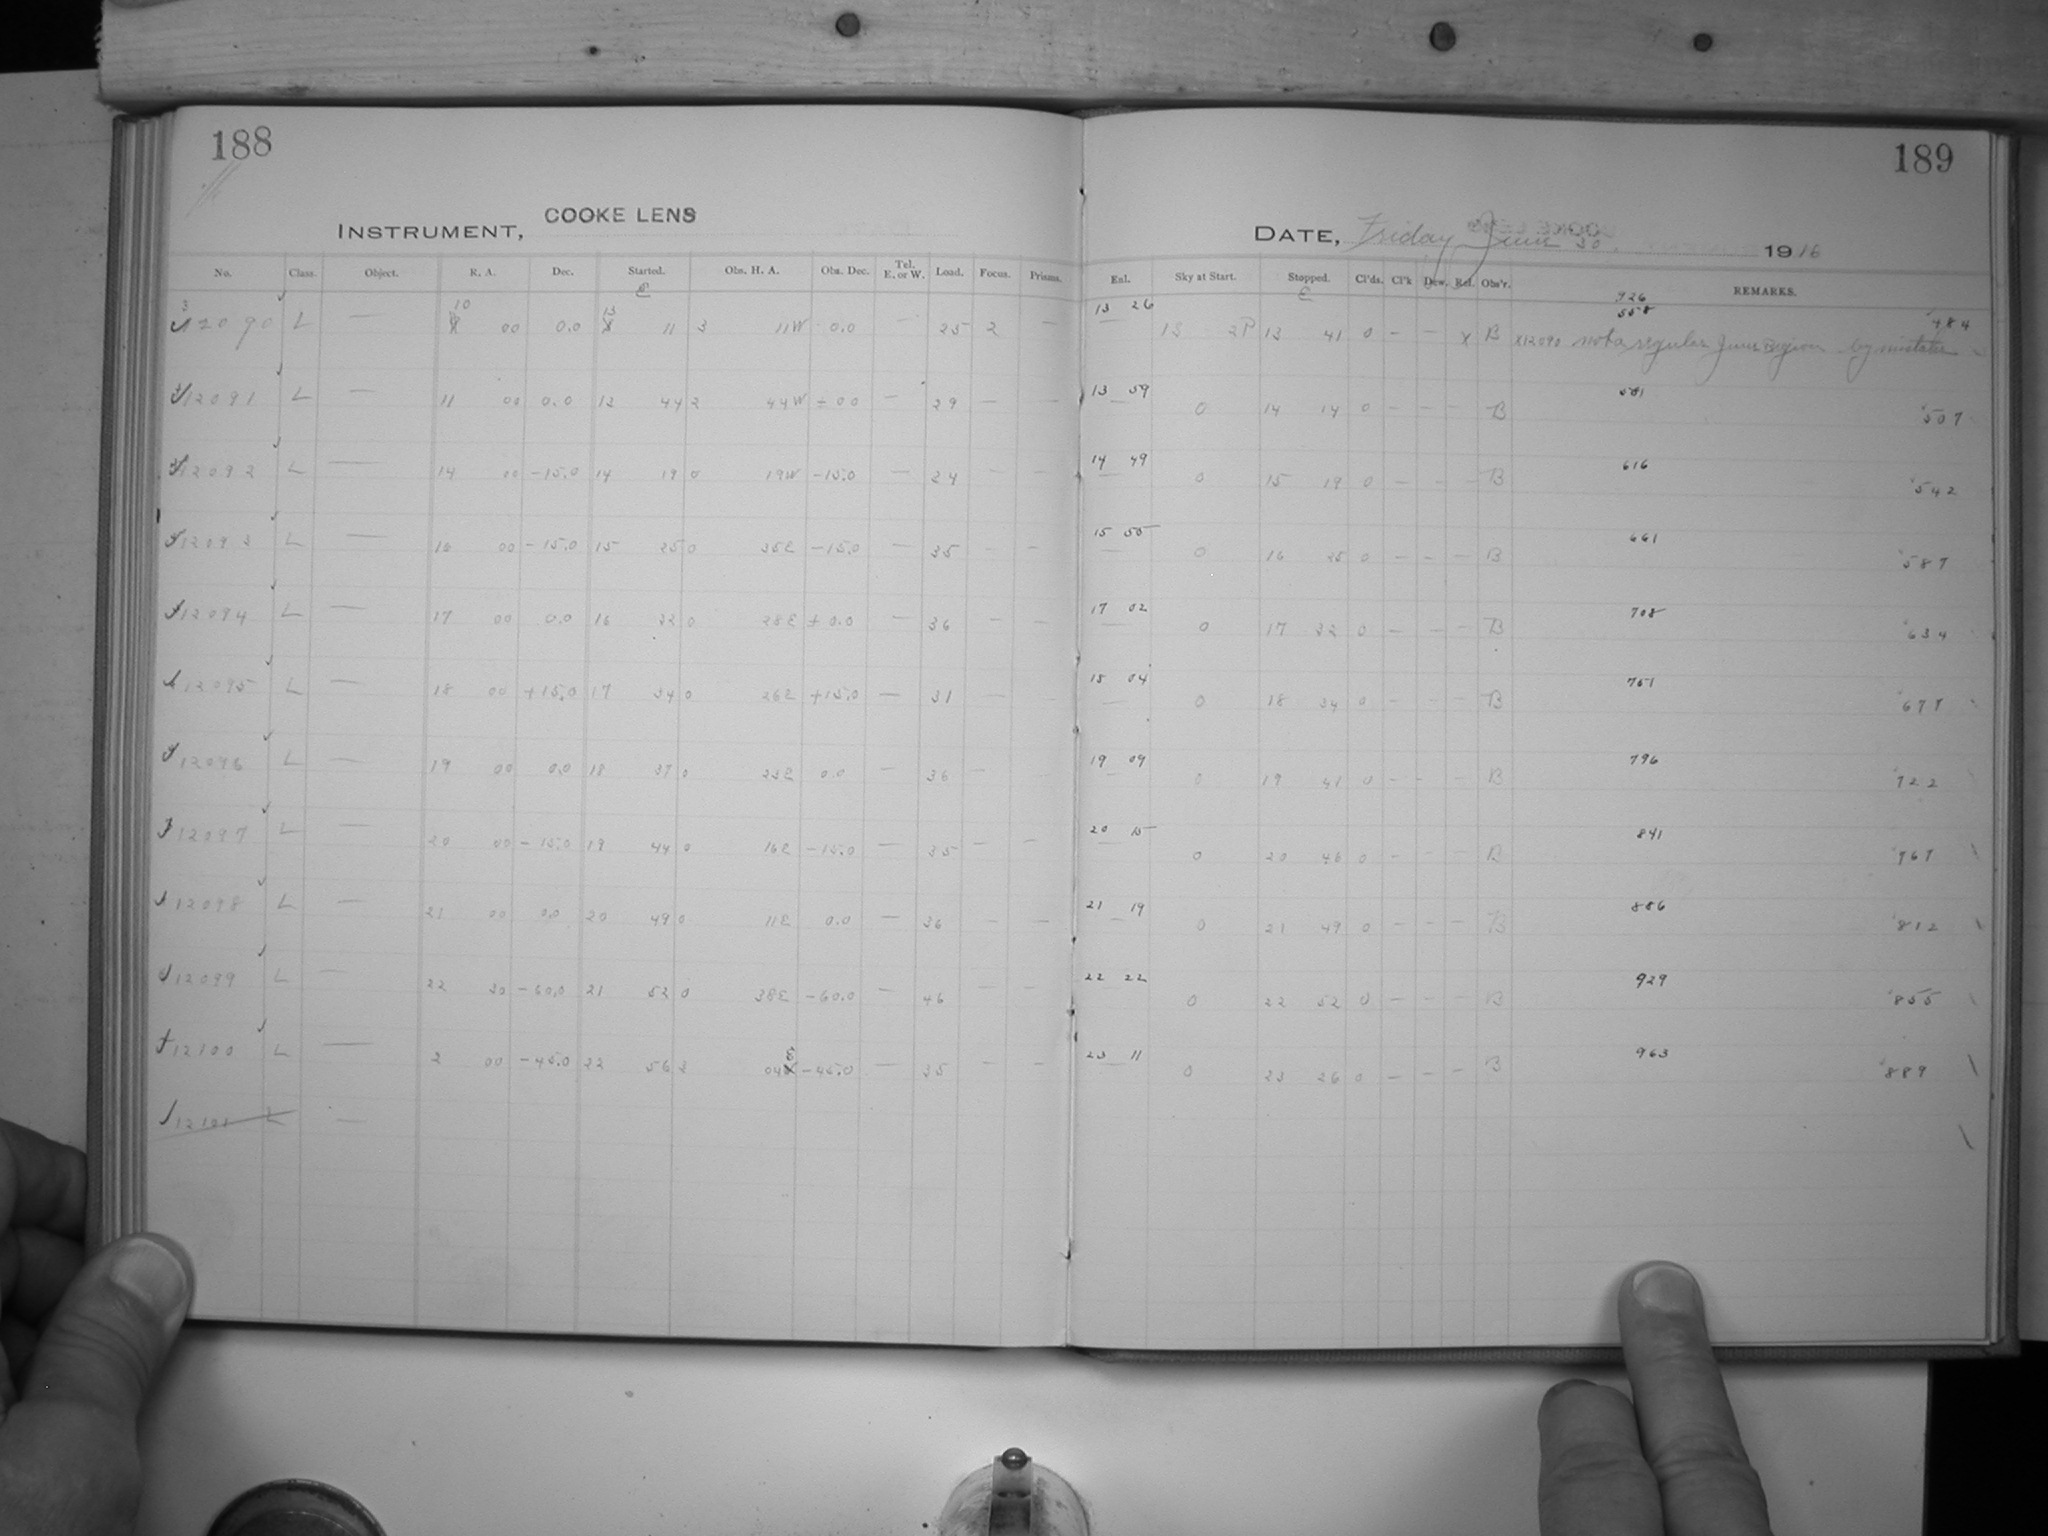 188
INSTRUMENT, COOKE LENS
No. Class. Object. R. A. Dec. Started. Obs. H. A. Obs. Dec. Tel. E. or W. Load. Focus. Prisms.
12090 L — 10 00 0.0 13 11 3 11W 0.0 — 25 2 —
12091 L — 11 00 0.0 13 44 2 44W ± 00 — 29 — —
12092 L — 14 00 -15.0 14 19 0 19W -15.0 — 24 —
12093 L — 16 00 -15.0 15 25 0 35E -15.0 — 35 — —
12094 L — 17 00 0.0 16 32 0 28E ± 0.0 — 36 — —
12095 L — 18 00 +15.0 17 34 0 26E +15.0 — 31 —
12096 L — 19 00 0.0 18 37 0 23E 0.0 — 36 —
12097 L — 20 00 -15.0 19 44 0 16E -15.0 — 35 — —
12098 L — 21 00 0.0 20 49 0 11E 0.0 — 36 — —
12099 L — 22 30 -60.0 21 52 0 38E -60.0 — 46 — —
12100 L — 2 00 -45.0 22 56 2 04E -45.0 — 35 — —
12101 L —
189
DATE, Friday June 30, 1916
Enl. Sky at Start. Stopped. Cl'ds. Cl'k Dew. Ref. Obs'r. REMARKS.
13 26 13 2P 13 41 0 — — x B 926 558 484
x12090 not a regular June Region by mistake
13 59 0 14 14 0 — — — B 581 507
14 49 0 15 19 0 — — — B 616 542
15 55 0 16 25 0 — — — B 661 587
17 02 0 17 32 0 — — — B 708 634
18 04 0 18 34 0 — — — B 751 677
19 09 0 19 41 0 — — — B 796 722
20 15 0 20 46 0 — — — B 841 767
21 19 0 21 49 0 — — — B 886 812
22 22 0 22 52 0 — — — B 929 855
23 11 0 23 26 0 — — — B 963 889